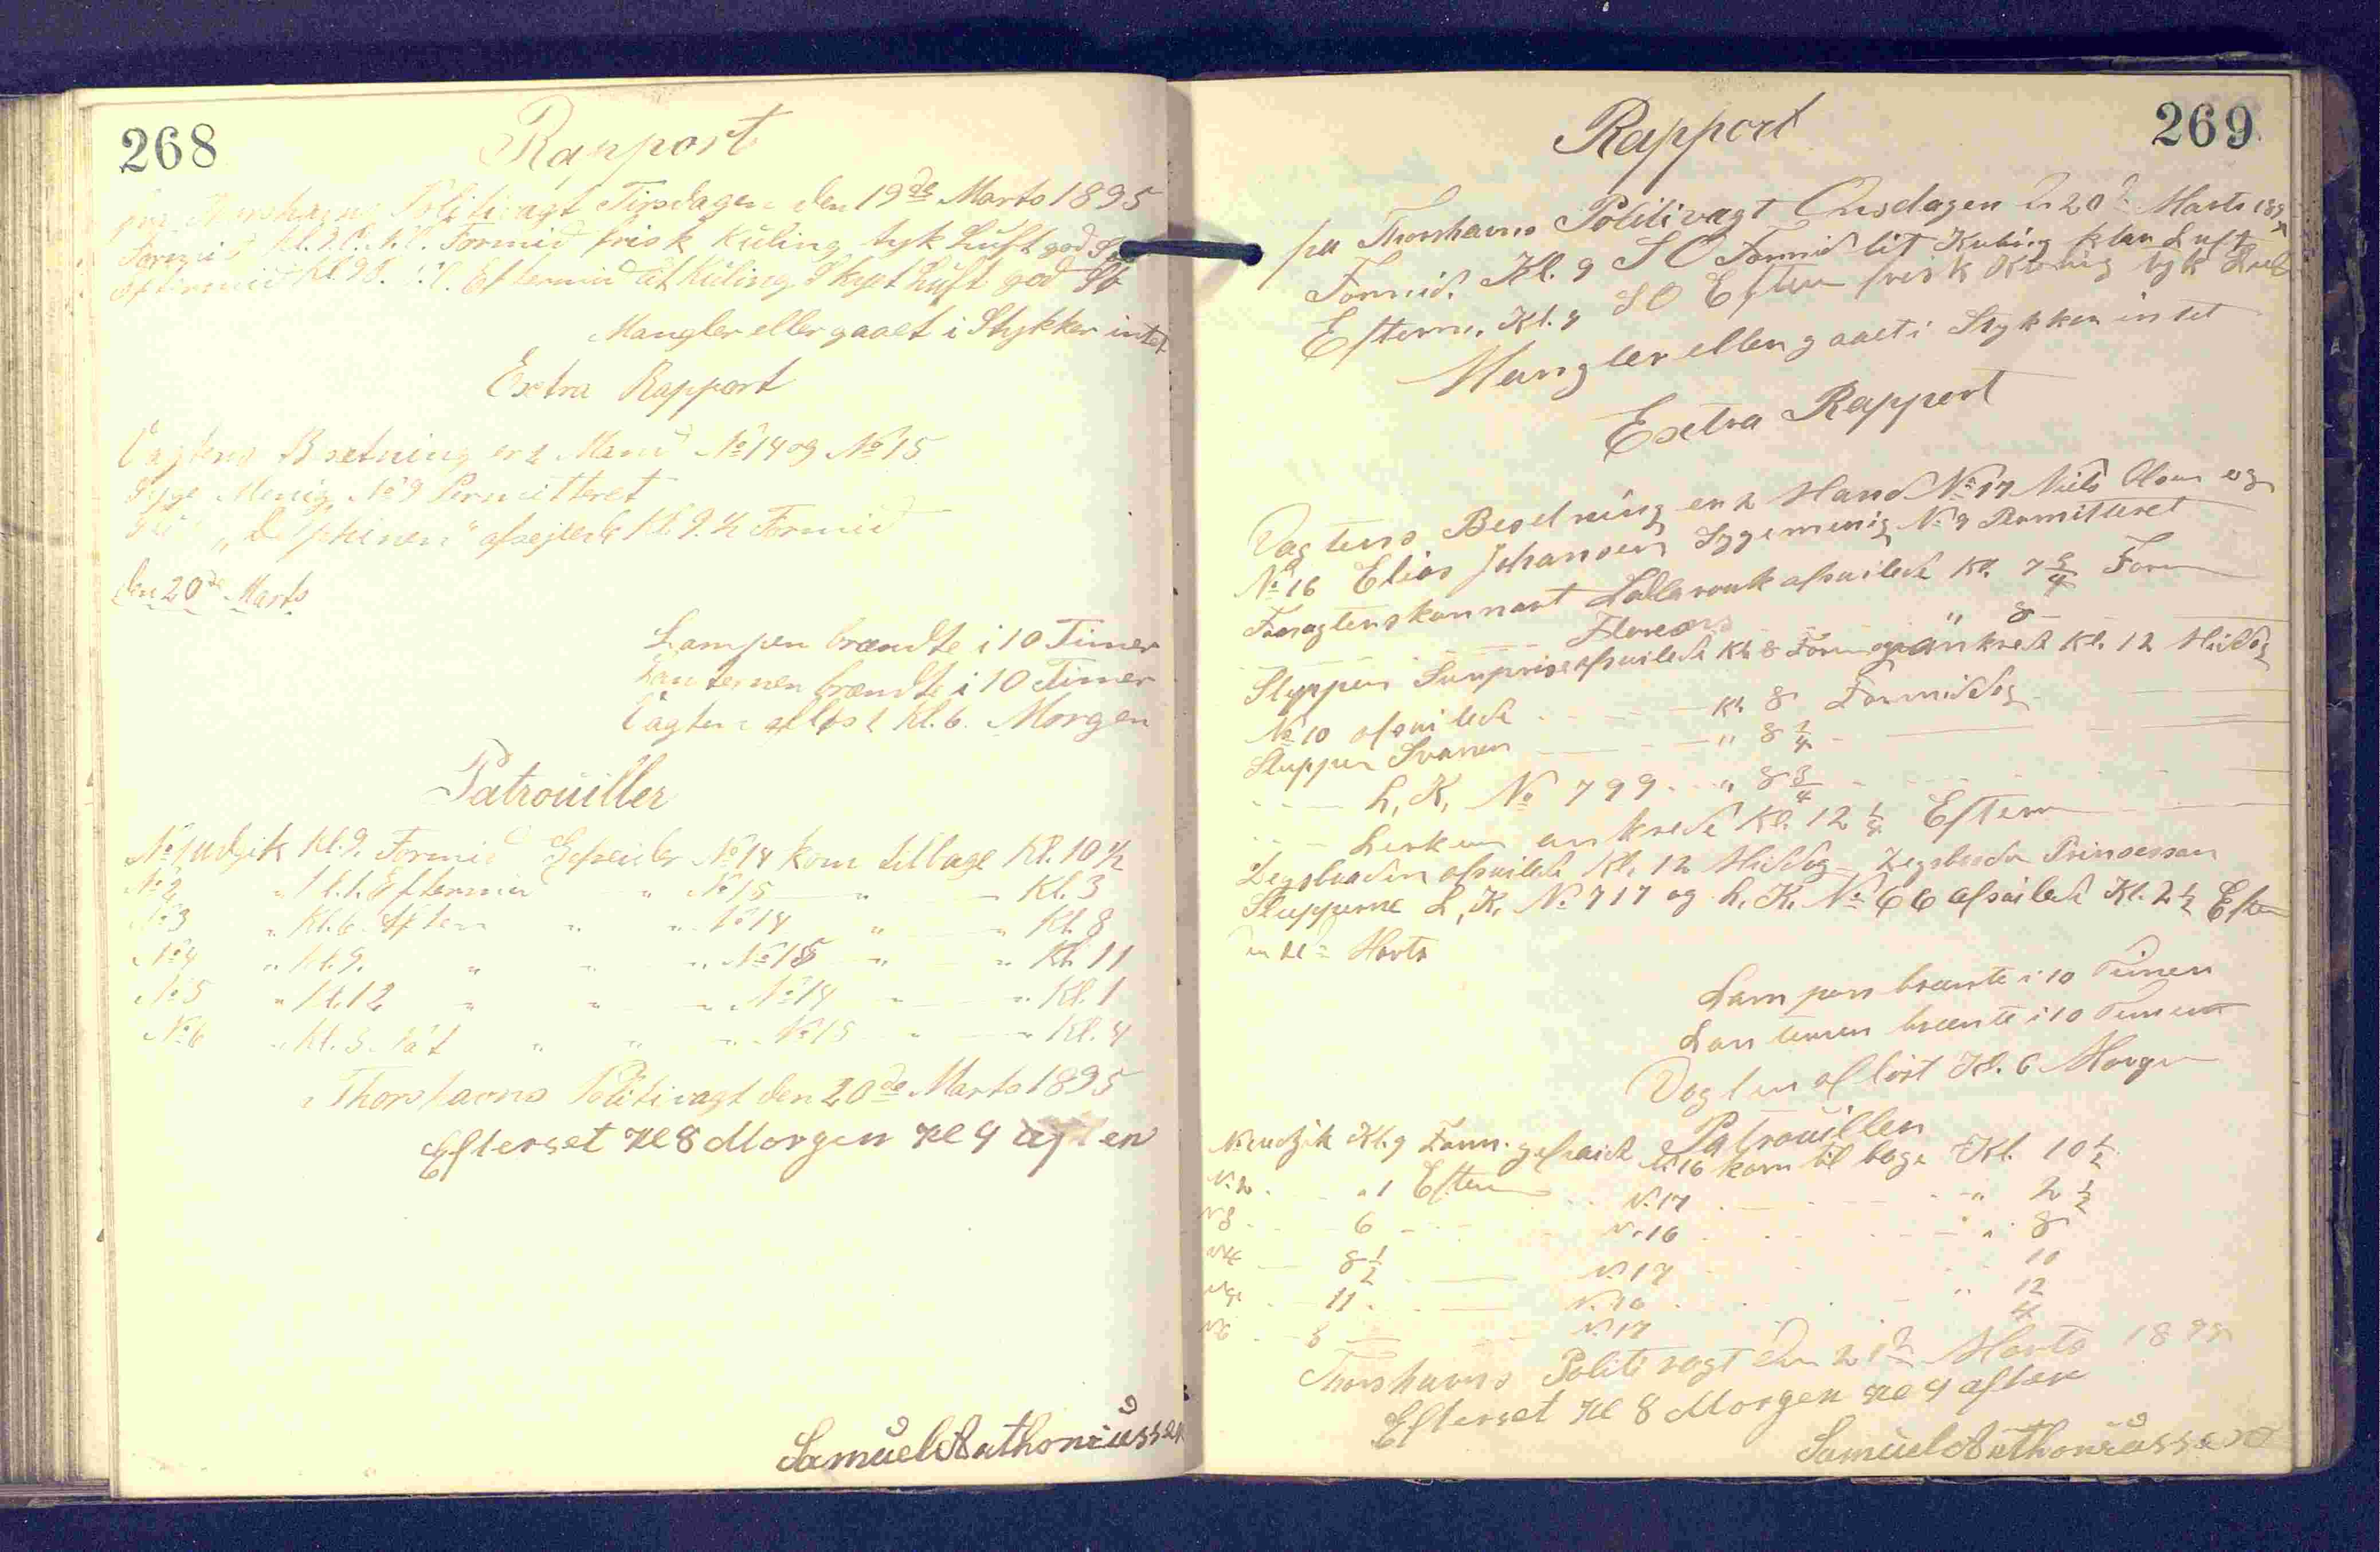 268
Rapport
paa Thorshavns Politivagt Tirsdagen den 19de Marts 1895
Formid Kl. 9. Formid frisk Kuling tyk Luft god
Eftermid Kl. 9 Eftermid lit Kuling Skyet Luft god
Mangler eller gaaet i Stykker intet
Extra Rapport
Vagtens Besetning er 2 Mand No 14 og No 15
Syge Menig No 9 Permitteret
"Delphinen" afsejlede Kl. 9.½ Formid
den 20de Marts
Lampen brændte i 10 Timer
Lanternen brændte i 10 Timer
Vagten afløst Kl. 6. Morgen
Patrouiller
No 1 udgik Kl. 9. Formid Gefreider No 14 kom tilbage Kl. 10½
No 2 " Kl. 1. Eftermid " No 15 " Kl. 3
No 3 " Kl. 6. Aften " " No 14 " " Kl. 8
No 4 " Kl. 9. " " " No 15 " " Kl. 11
No 5 " Kl. 12 " " " No 14 " " Kl. 1
No 6 " Kl. 3 Nat " " " No 15 " " Kl. 4
Thorshavns Politivagt den 20de Marts 1895
Efterset Kl 8 Morgen Kl 9 aften
Samuel Anthoniussen
269
Rapport
paa Thorshavns Politivagt Onsdagen d. 20d Marts 1895
Formid. Kl. 9 SO Formid lit Kuling klar Luft
Efterm. Kl. 9 SO Efterm frisk Kuling tyk Luft
Mangler eller gaaet i Stykker intet
Extra Rapport
Vagtens Besetning er 2 Mand No 17 Niels Olsen og
No 16 Elias Johansen Sygemenig No 9 Permitteret
Lalla rouk afseilede Kl. 7¾ Form
" 8
Sluppen Surprise afseilede Kl 8 Form og ankrede Kl. 12 Middag
No 10 afseilede Kl 8 Formiddag
Sluppen Svanen " 8¼
L. K. No 799 " 8¾
Lerken ankrede Kl. 12½ Efterm
afseilede Kl. 12 Middag Prinsessen
Slupperne L. K. No 717 og L. K. No 66 afseilede Kl. 2½ Efterm
Marts
Lampen brænte i 10 Timer
Lanternen brænte i 10 Timer
Vagten afløst Kl. 6 Morgen
Patrouillen
No 1 udgik Kl. 9 Form. gefraid No 16 kom til bage Kl. 10½
No 2 " 1 Efterm No 17 " 2½
No 3 6 No 16 " 8
No 4 8½ No 17 10
No 5 11 No 16 " 12
No 6 3 No 17 4
Thorshavns Politivagt den 21d Marts 1895
Efterset Kl 8 Morgen Kl 9 aften
Samuel Anthoniussen